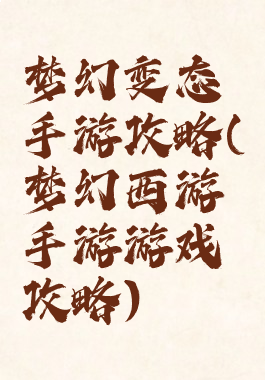 梦幻变态
手游攻略(
梦幻西游
手游游戏
攻略)